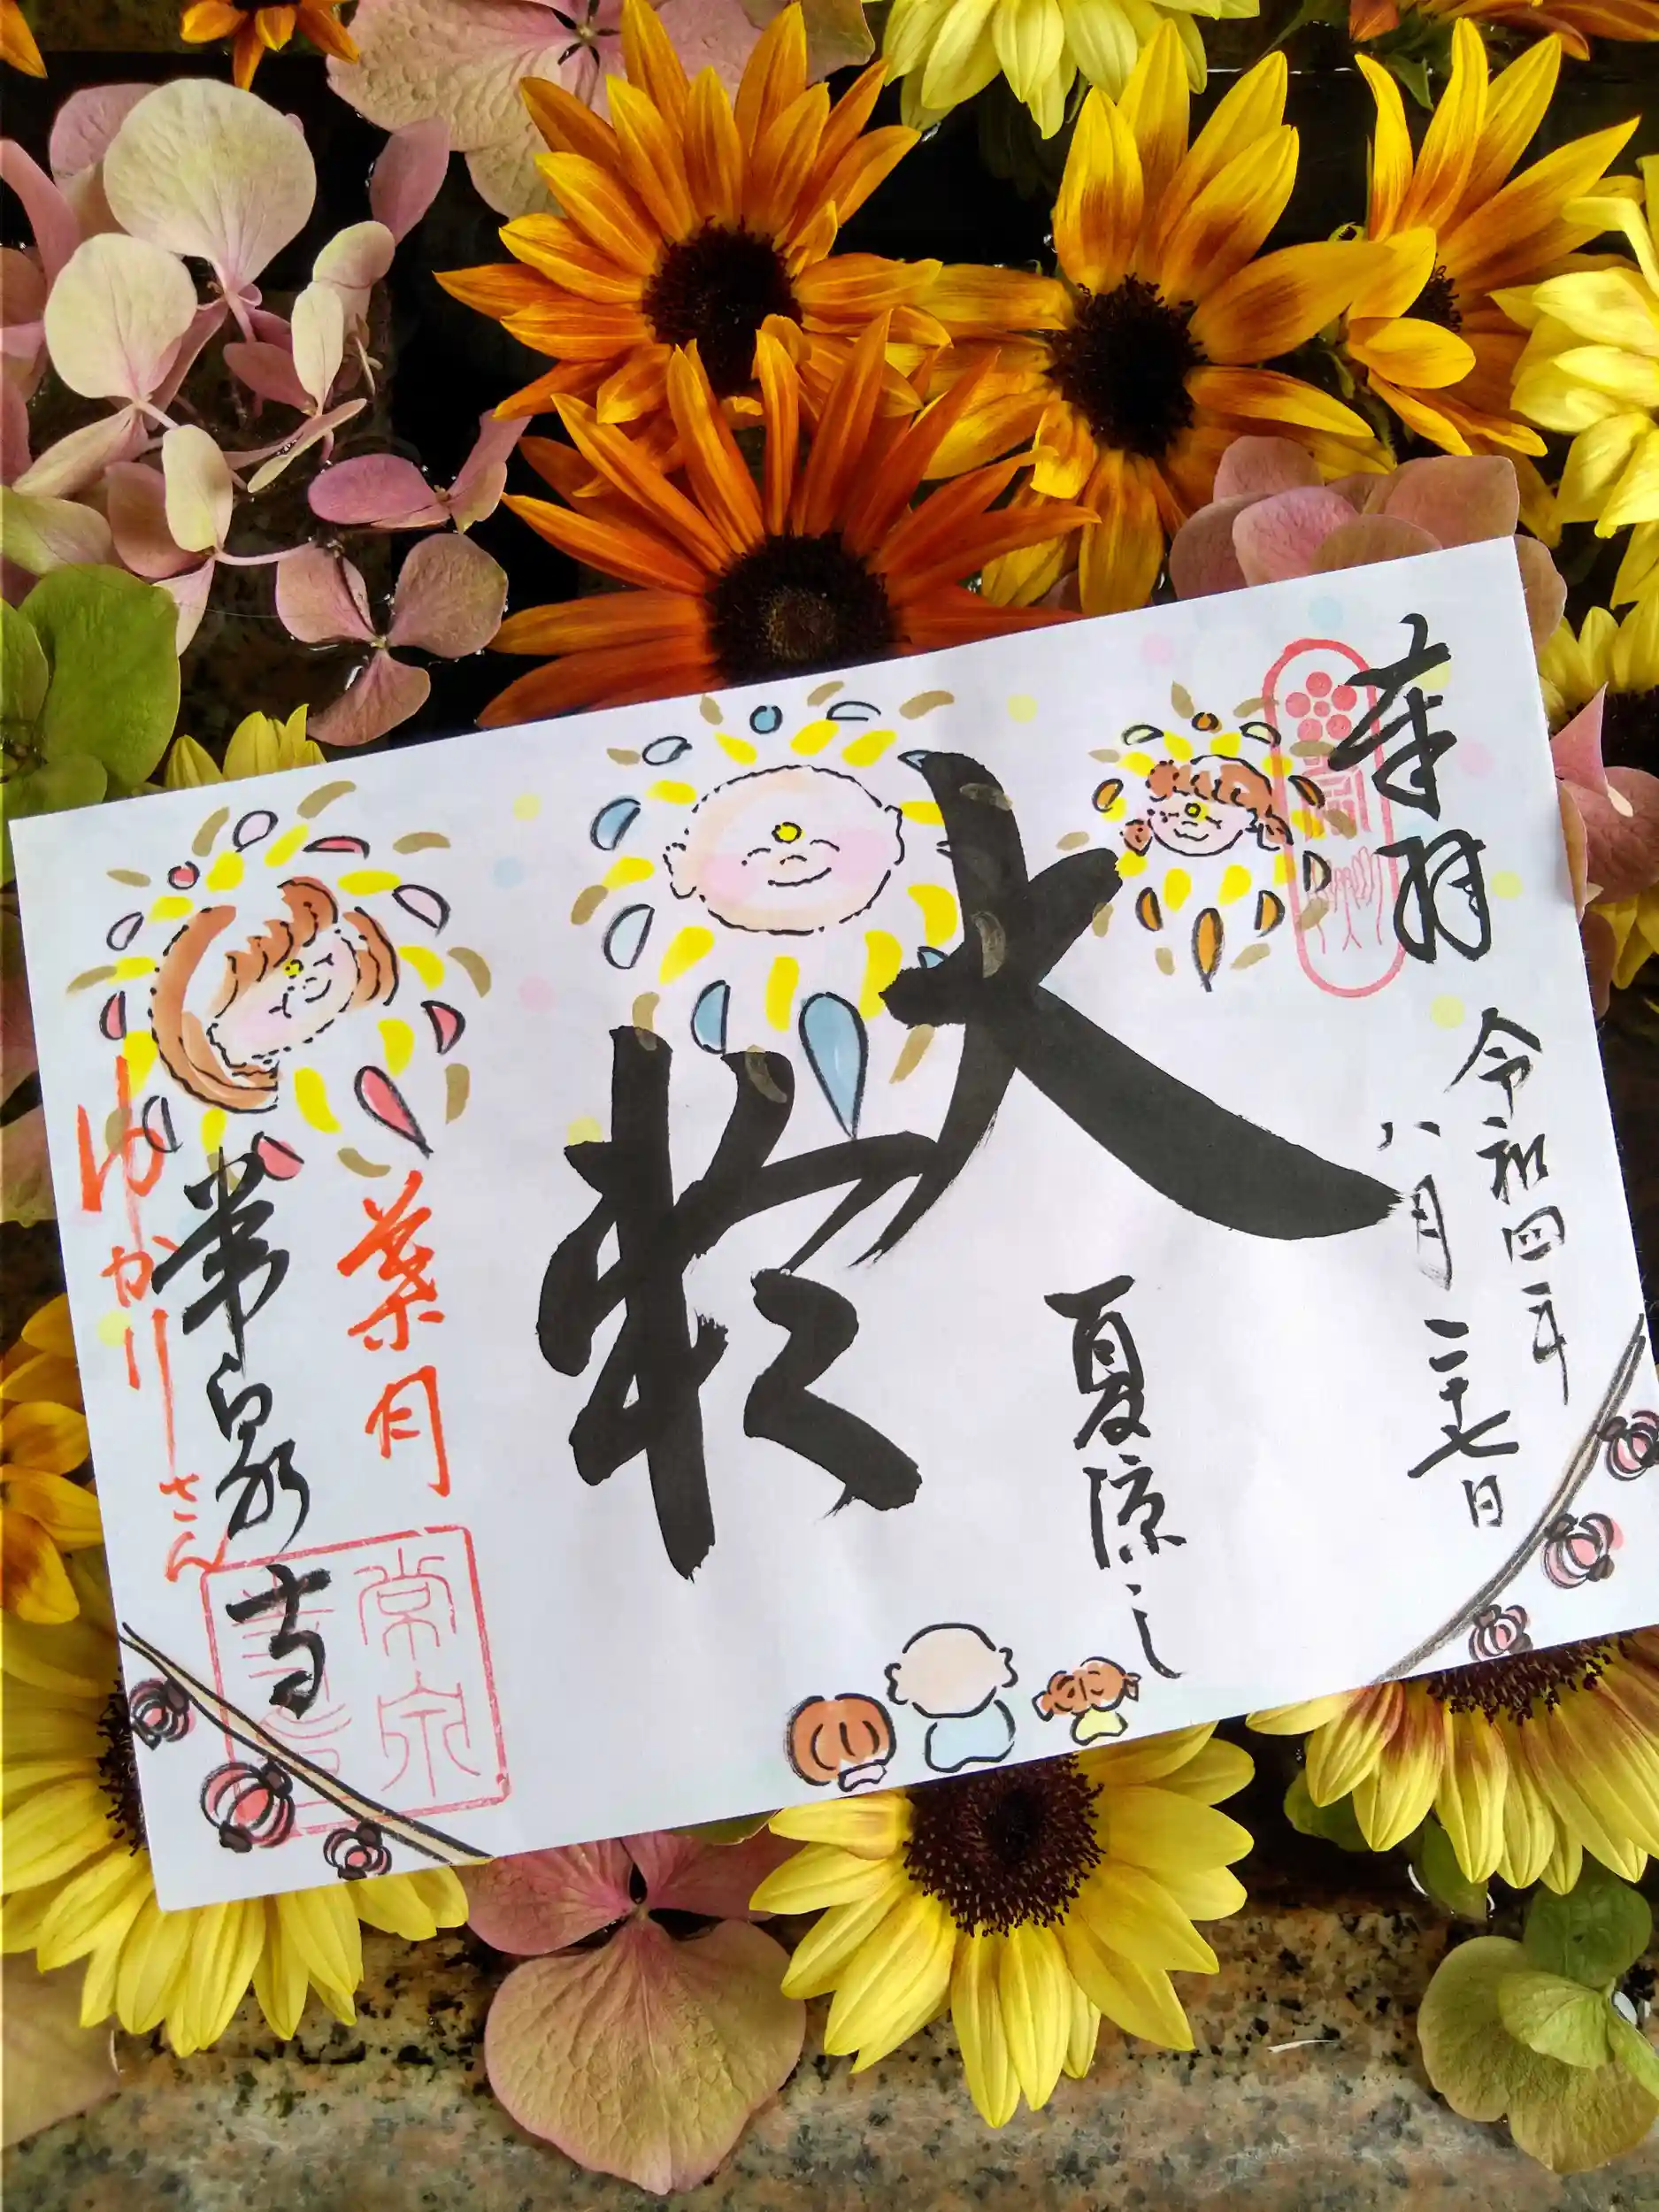 奉拜
令和四年
八月二十七日
大
夏涼し
葉月
常泉寺
ゆかりさん
常泉